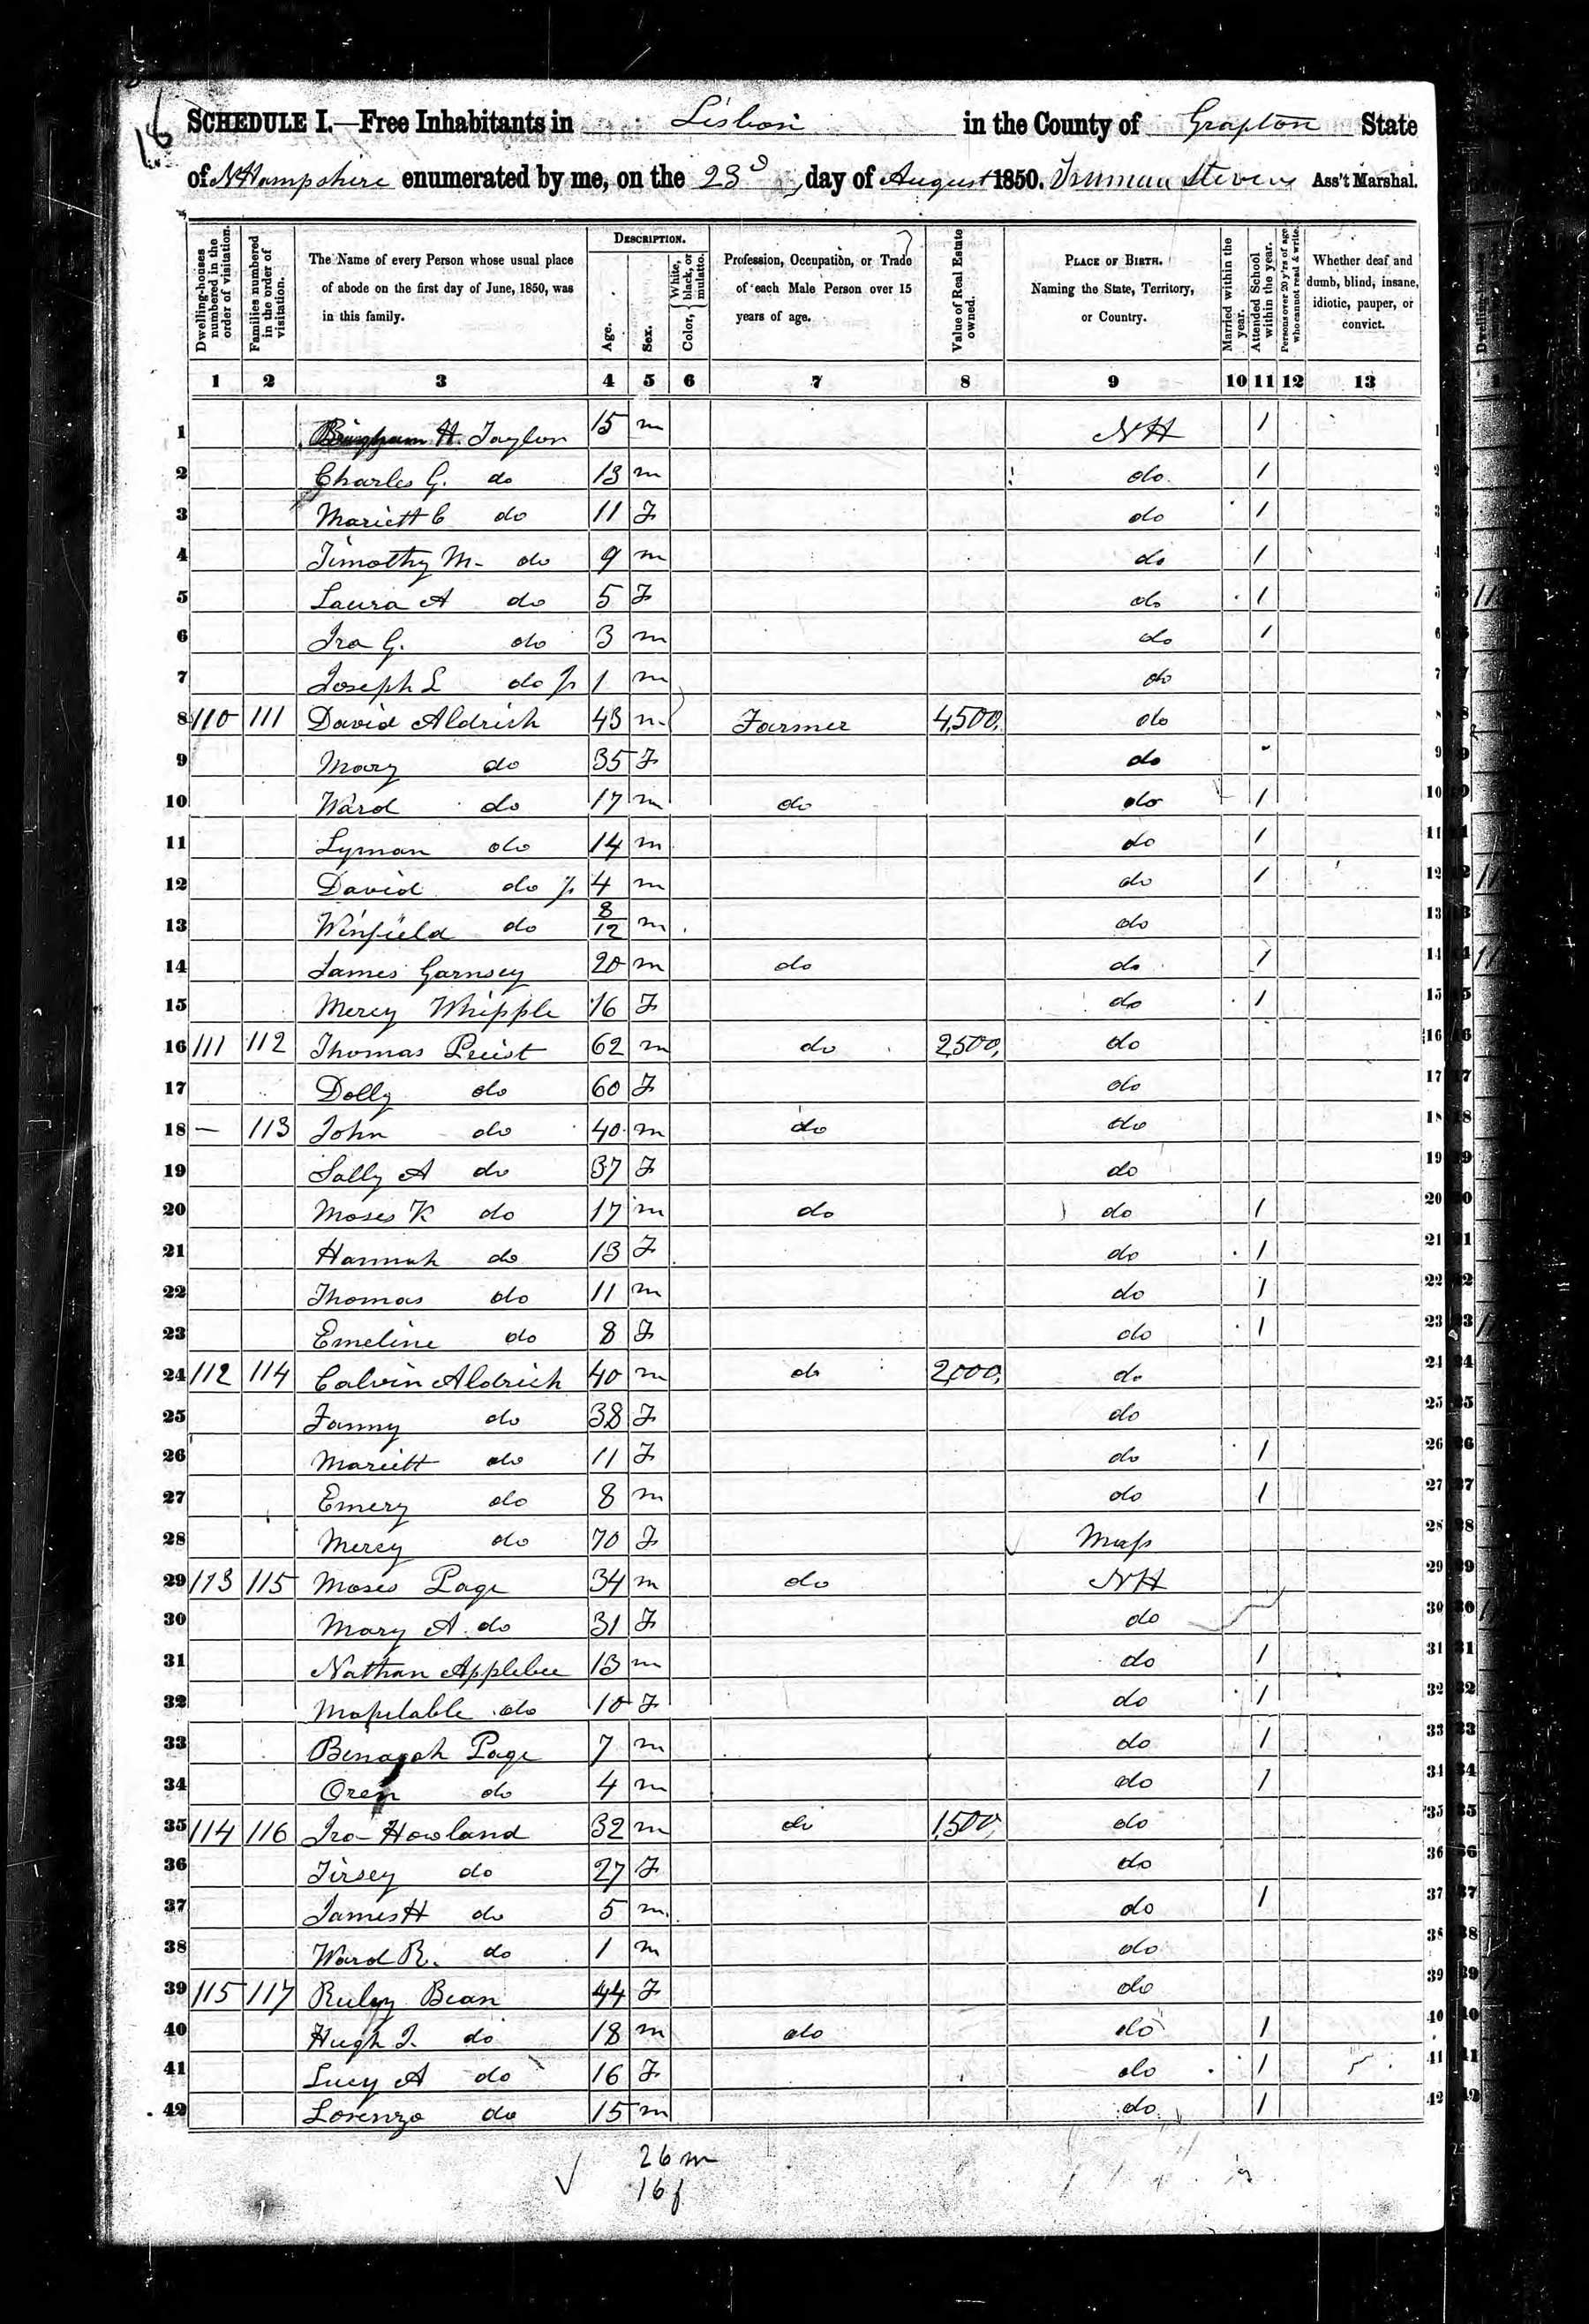 18
SCHEDULE I.—Free Inhabitants in Lisbon in the County of Grafton State
of N Hampshire enumerated by me, on the 23d day of August 1850. Truman Stevens Ass't Marshal.
Dwelling-houses numbered in the order of visitation.
Families numbered in the order of visitation.
The Name of every Person whose usual place of abode on the first day of June, 1850, was in this family.
DESCRIPTION.
Age.
Sex.
Color, { White, black, or mulatto.
Profession, Occupation, or Trade of each Male Person over 15 years of age.
Value of Real Estate owned.
PLACE OF BIRTH. Naming the State, Territory, or Country.
Married within the year.
Attended School within the year.
Persons over 20 y'rs of age who cannot read & write.
Whether deaf and dumb, blind, insane, idiotic, pauper, or convict.
1 2 3 4 5 6 7 8 9 10 11 12 13
1 H. Taylor 15 m NH / 1
2 Charles G. do 13 m do / 2
3 Mariett C do 11 F do / 3
4 Timothy M- do 9 m do / 4
5 Laura A do 5 F do / 5
6 Ira G. do 3 m do / 6
7 Joseph L do Jr 1 m do 7
8 110 111 David Aldrich 43 m Farmer 4,500, do 8
9 Mary do 35 F do 9
10 Ward do 17 m do do / 10
11 Lyman do 14 m do / 11
12 David do Jr 4 m do / 12
13 Winfield do 8/12 m do 13
14 James Garnsey 20 m do do / 14
15 Mercy Whipple 16 F do / 15
16 111 112 Thomas Priest 62 m do 2,500, do 16
17 Dolly do 60 F do 17
18 — 113 John do 40 m do do 18
19 Sally A do 37 F do 19
20 Moses K do 17 m do do / 20
21 Hannah do 13 F do / 21
22 Thomas do 11 m do / 22
23 Emeline do 8 F do / 23
24 112 114 Calvin Aldrich 40 m do 2,000, do 24
25 Fanny do 38 F do 25
26 Mariett do 11 F do / 26
27 Emery do 8 m do / 27
28 Mercy do 70 F Mass 28
29 113 115 Moses Page 34 m do NH 29
30 Mary A. do 31 F do 30
31 Nathan Applebee 13 m do / 31
32 do 10 F do / 32
33 Page 7 m do / 33
34 Oren do 4 m do / 34
35 114 116 Ira Howland 32 m do 1,500, do 35
36 Tirsey do 27 F do 36
37 James H do 5 m do / 37
38 Ward R. do 1 m do 38
39 115 117 Ruby Bean 44 F do 39
40 Hugh J. do 18 m do do / 40
41 Lucy A do 16 F do / 41
42 Lorenzo do 15 m do / 42
26 m
16 f